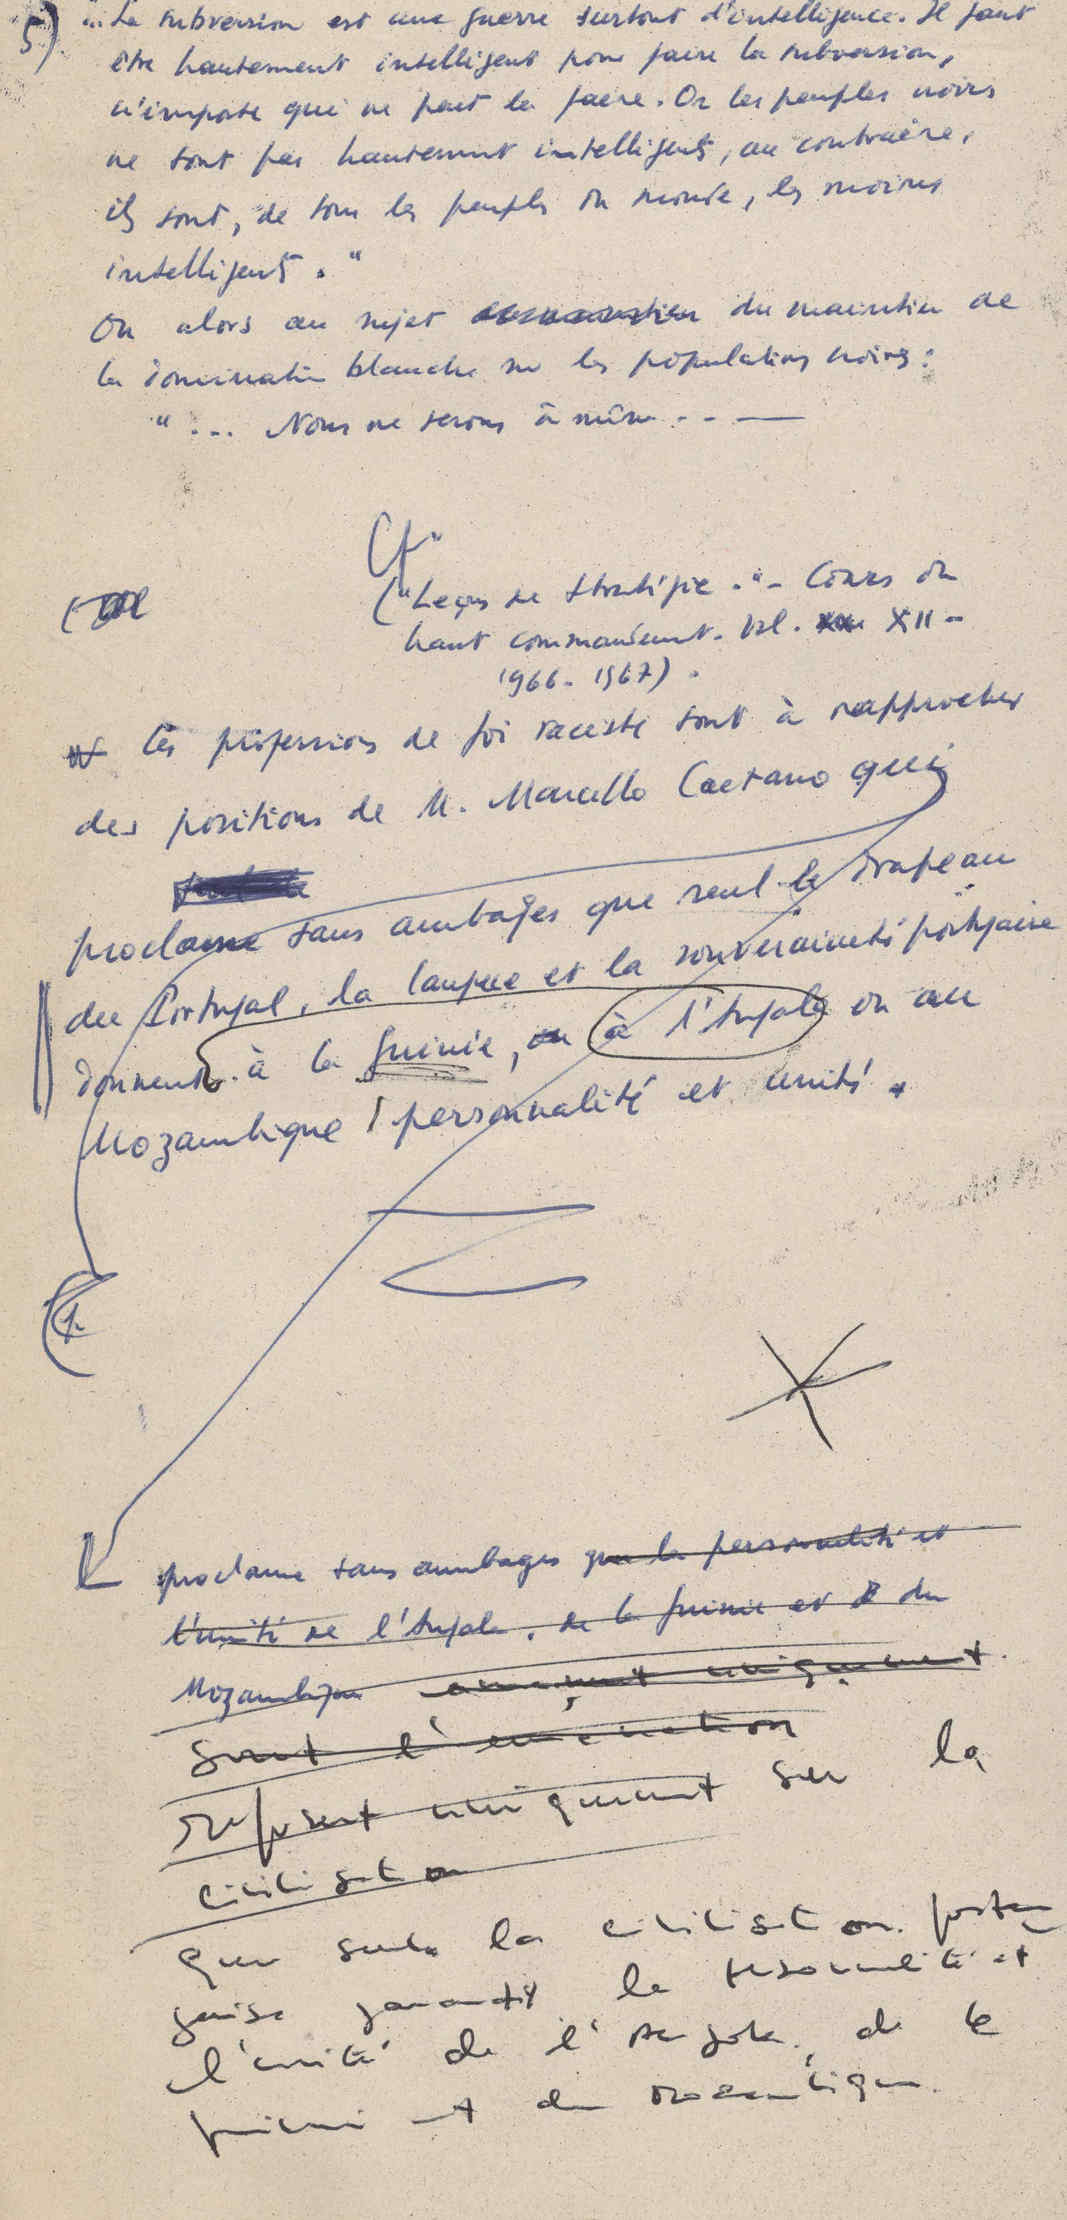 5) "... La subversion est une guerre surtout d'intelligence. Il faut
être hautement intelligent pour faire la subversion,
n'importe qui ne peut la faire. Or les peuples noirs
ne sont pas hautement intelligents, au contraire,
ils sont, de tous les peuples du monde, les moins
intelligents."
Ou alors au sujet du maintien de
la domination blanche sur les populations noires :
"... Nous ne serons à même - - —
Cf.
("Leçons de Stratégie." - Cours du
haut commandement. Vol. XII -
1966 - 1967).
Ces professions de foi raciste sont à rapprocher
des positions de M. Marcello Caetano qui
proclame sans ambages que seul le drapeau
du Portugal, la langue et la souveraineté portugaise
donnent à la Guinée, ou à l'Angola ou au
Mozambique personnalité et unité.
proclame sans ambages que la personnalité et
l'unité de l'Angola, de la Guinée et du
Mozambique uniquement
sont l'émanation
reposent uniquement sur la
civilisation
que seule la civilisation portu
gaise garantit la personnalité et
l'unité de l'Angola, de la
Guinée et du Mozambique.